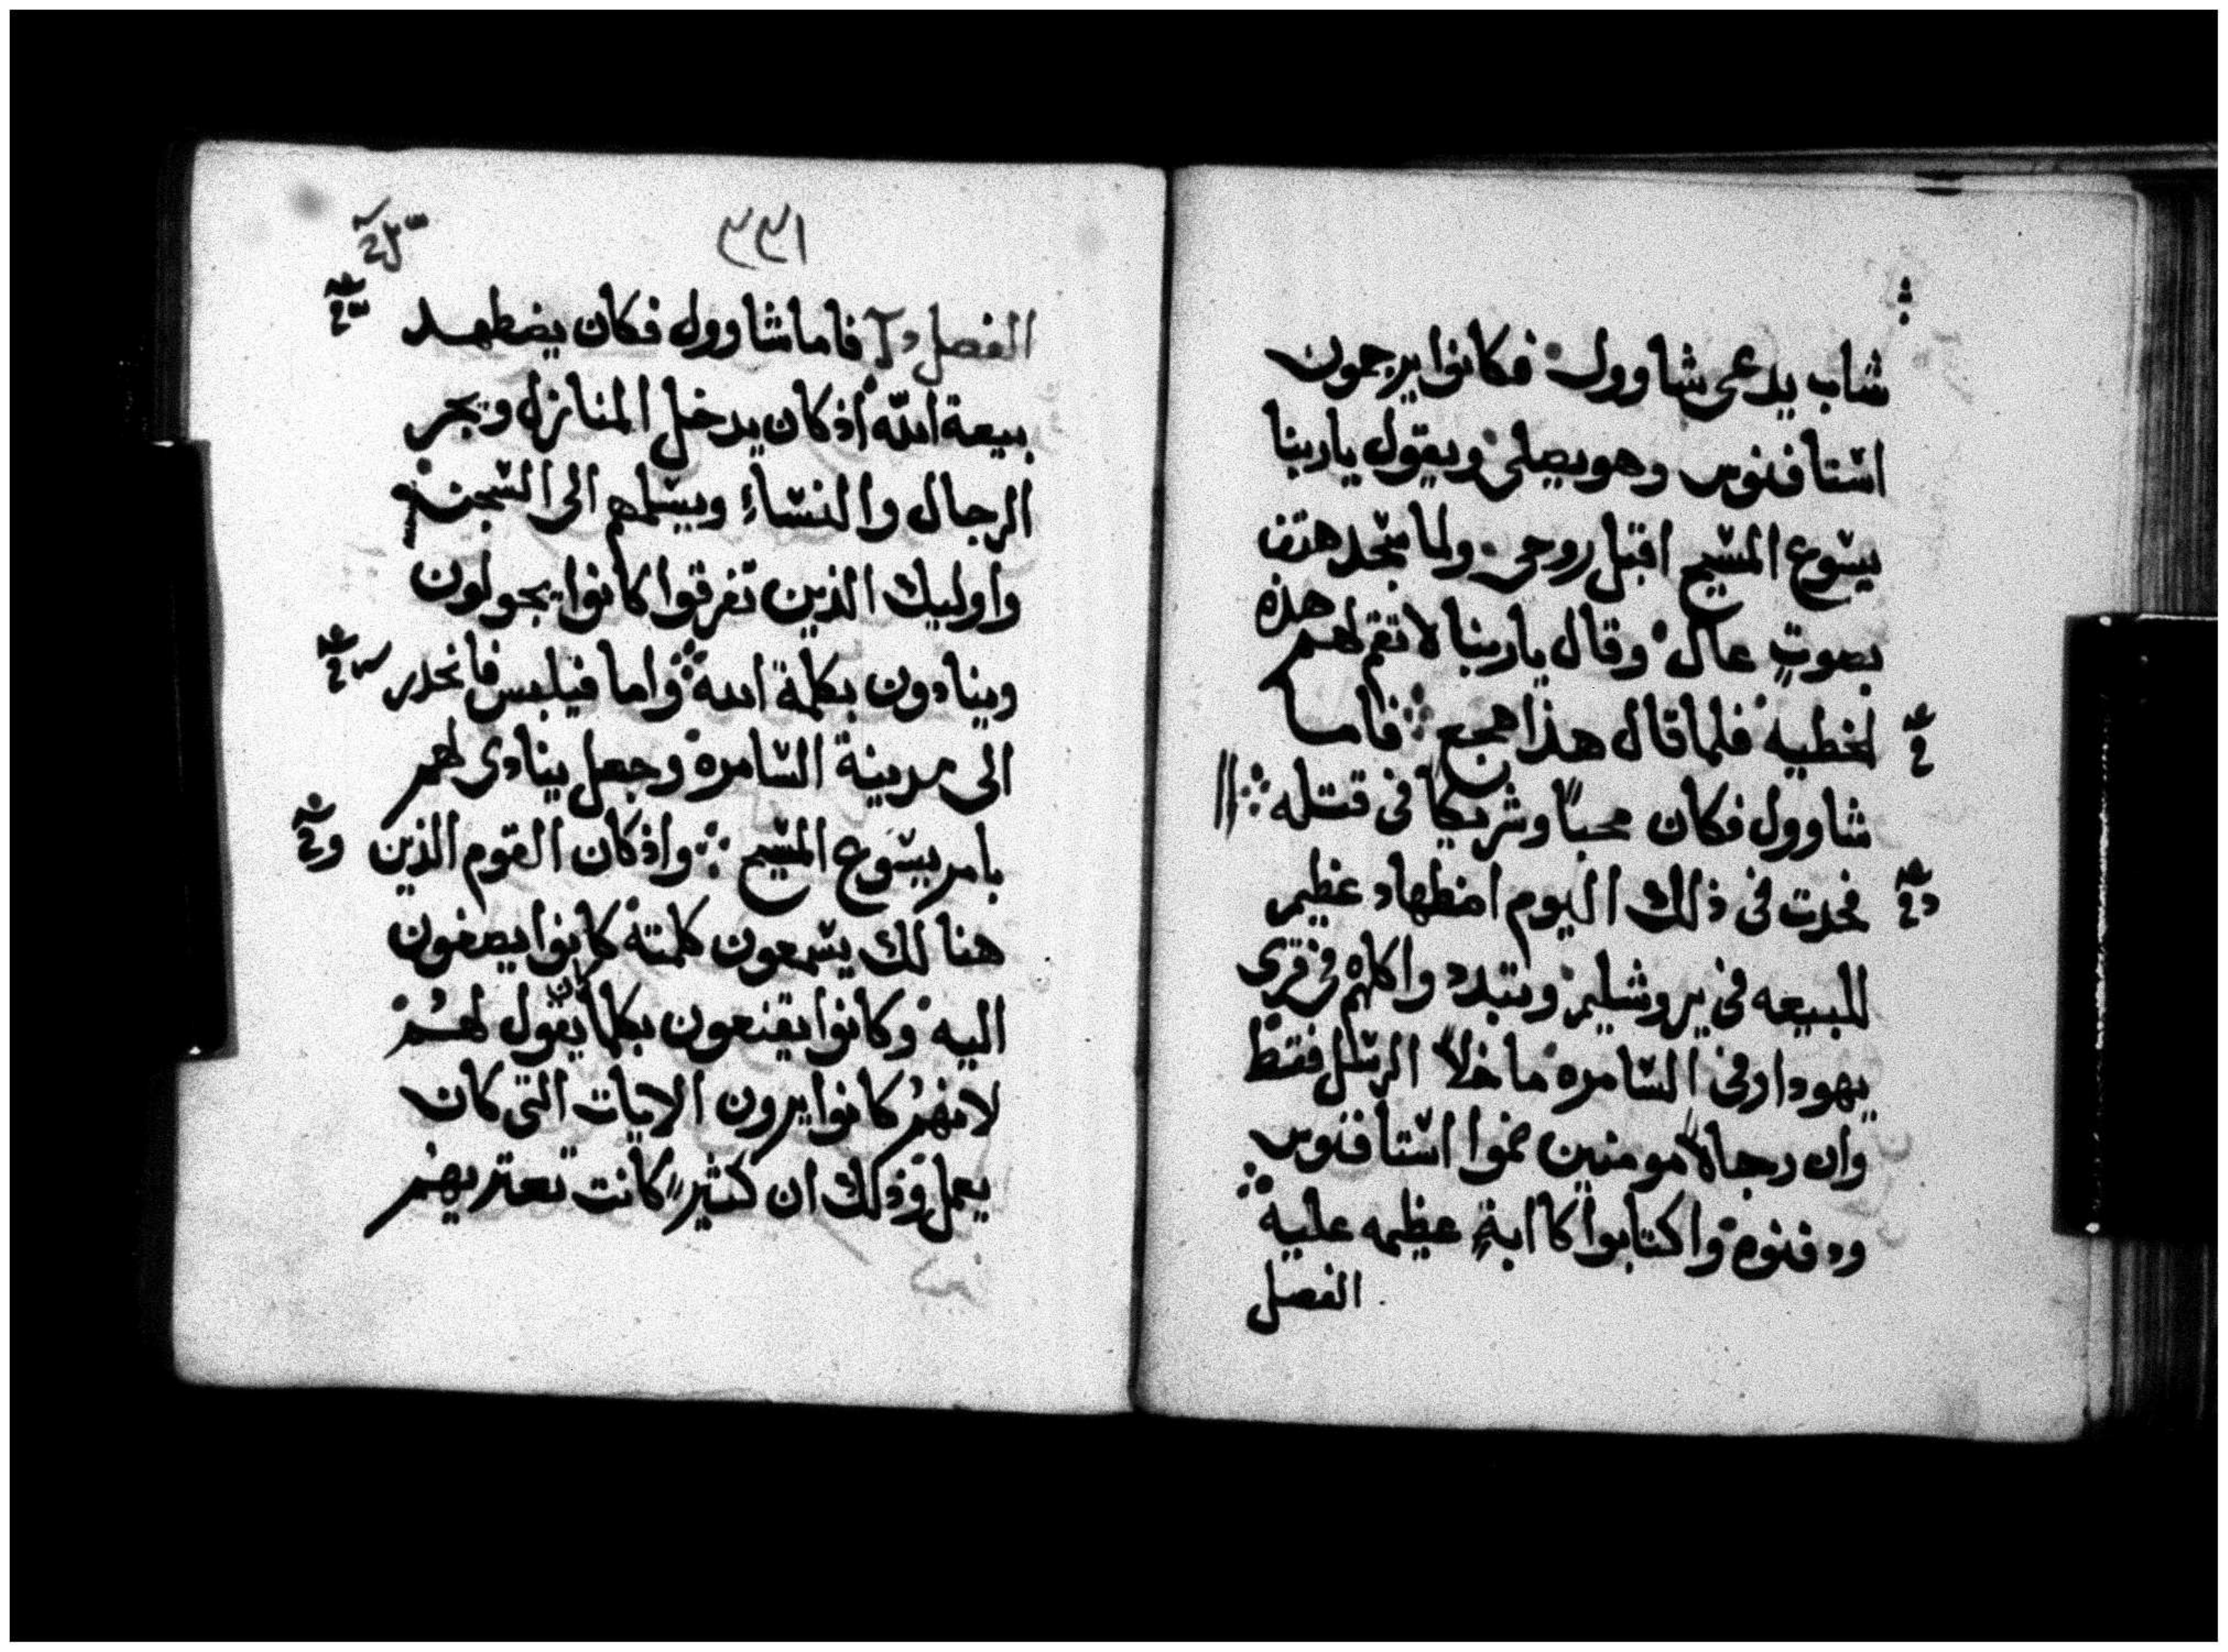 شاب يدعى شاوول فكانوا يرجمون
استافنوس وهو يصلى ويقول ياربنا
يسوع المسيح اقبل روحى ولما سجد هتف
بصوتٍ عال وقال ياربنا لا تقم لهم هذه
الخطيه فلما قال هذا هجع فاما
شاوول فكان محباً وشريكا فى قتله
فحدث فى ذلك اليوم اضطهاد عظيم
للبيعه فى يروشليم وتبدد واكلهم فى قرى
يهودا وفى السامره ما خلا الرسل فقط
وان رجالاً مومنين ضموا استافنوس
ودفنوه واكتابوا كاابةٍ عظيمه عليه
الفصل
٣٣١
الفصل فاما شاوول فكان يضطهد
بيعة الله اذ كان يدخل المنازل ويجر
الرجال والنساءِ ويسلمهم الى السجن
واوليك الذين تفرقوا كانوا يجولون
وينادون بكلمة الله واما فيلبس فانحدر
الى مدينة السامره وجعل ينادى لهم
بامر يسوع المسيح واذ كان القوم الذين
هنالك يسمعون كلمته كانوا يصغون
اليه وكانوا يقنعون بكلما كان يقول لهم
لانهم كانوا يرون الايات التى كان
يعمل وذلك ان كثيراً كانت تعتريهم